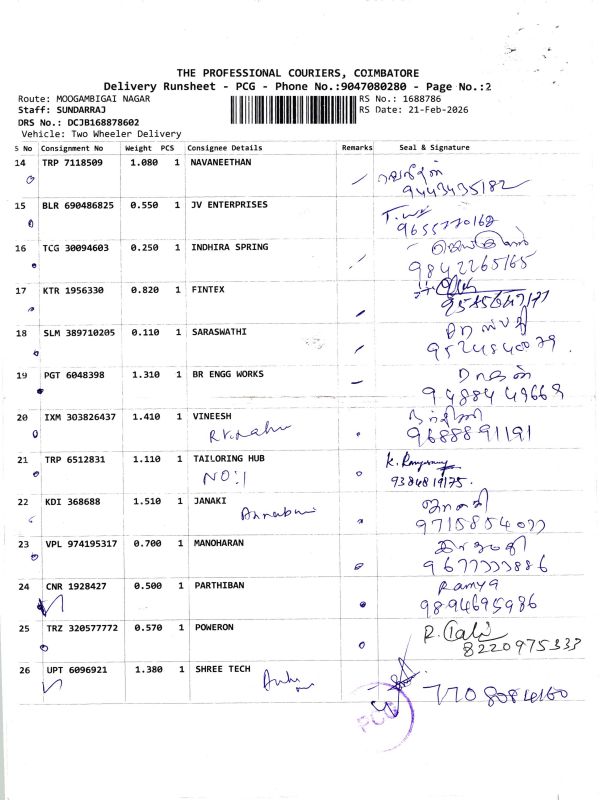 THE PROFESSIONAL COURIERS, COIMBATORE
Delivery Runsheet - PCG - Phone No.:9047080280 - Page No.:2
Route: MOOGAMBIGAI NAGAR RS No.: 1688786
Staff: SUNDARRAJ RS Date: 21-Feb-2026
DRS No.: DCJB168878602
Vehicle: Two Wheeler Delivery
S No Consignment No Weight PCS Consignee Details Remarks Seal & Signature
14 TRP 7118509 1.080 1 NAVANEETHAN
9443435182
15 BLR 690486825 0.550 1 JV ENTERPRISES
9655770162
16 TCG 30094603 0.250 1 INDHIRA SPRING
9842265165
17 KTR 1956330 0.820 1 FINTEX
18 SLM 389710205 0.110 1 SARASWATHI
9524840079
19 PGT 6048398 1.310 1 BR ENGG WORKS
9488449669
20 IXM 303826437 1.410 1 VINEESH
9688891191
21 TRP 6512831 1.110 1 TAILORING HUB
NO:1 9384819175.
22 KDI 368688 1.510 1 JANAKI
9715854077
23 VPL 974195317 0.700 1 MANOHARAN
9677777886
24 CNR 1928427 0.500 1 PARTHIBAN Ramya
9894695986
25 TRZ 320577772 0.570 1 POWERON
8220975333
26 UPT 6096921 1.380 1 SHREE TECH
7708084160
PCG